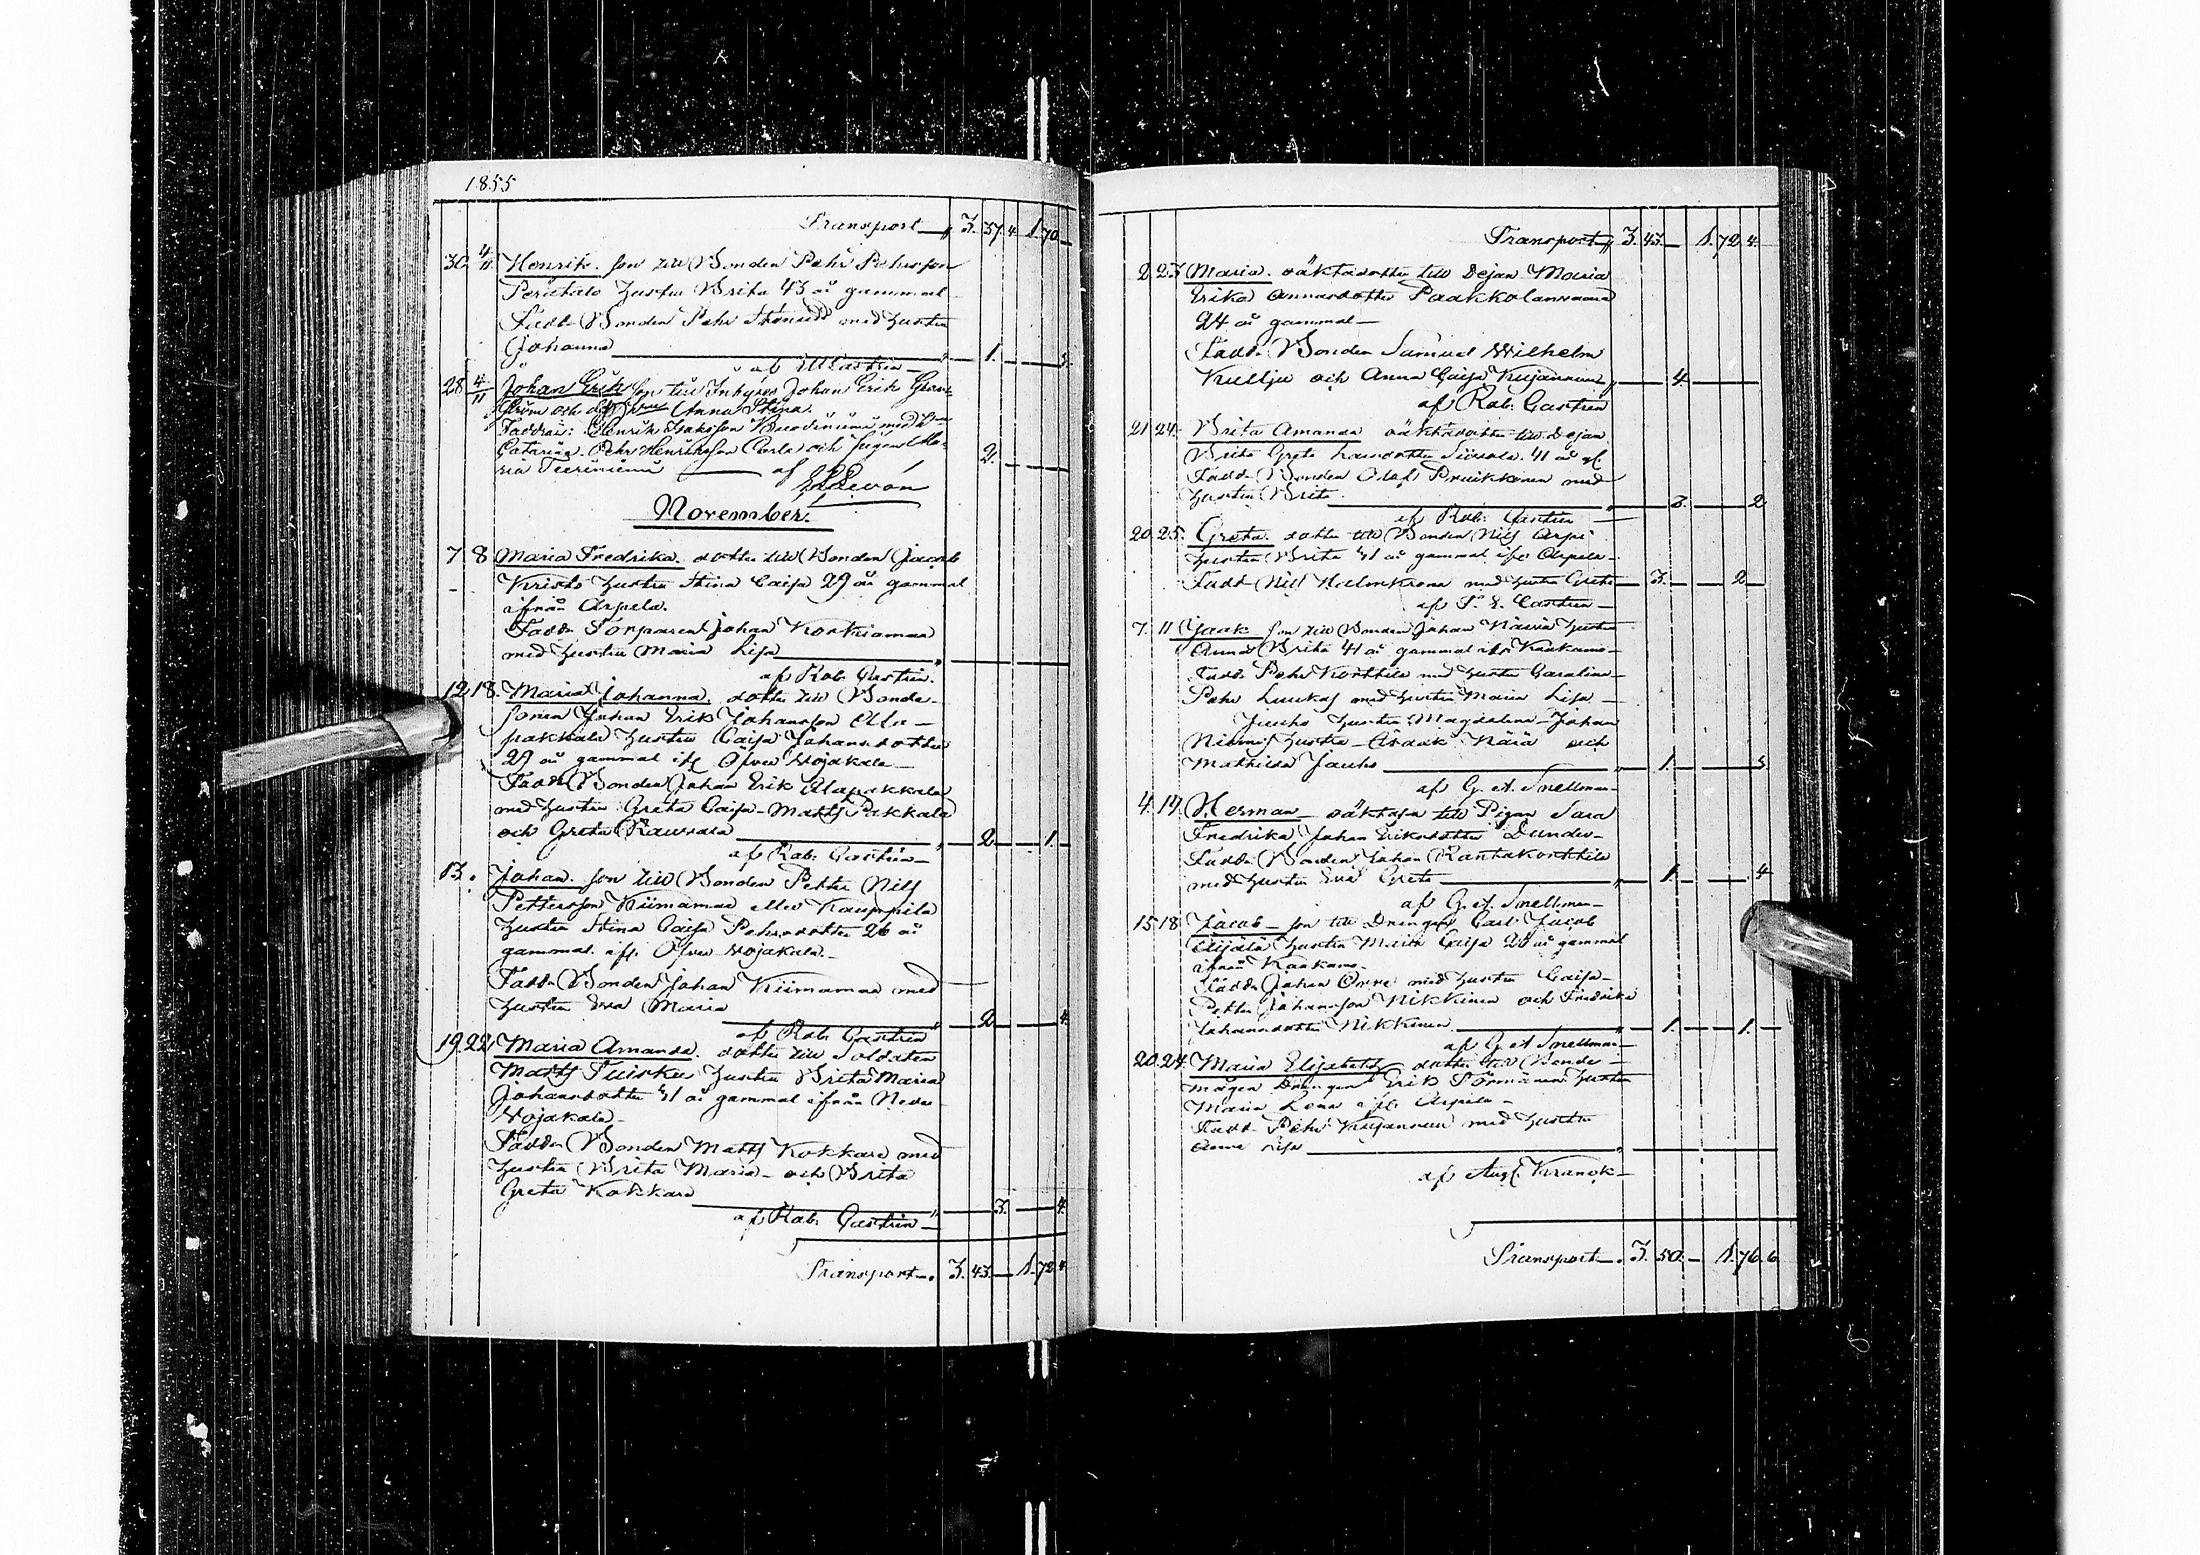 1855
Transport 3. 57. 4 1. 70
30 4/11 Henrik. son till Bonden Pehr Pehrsson
Perätalo hustru Brita 43 år gammal
Fadd. Bonden Pehr med hustru
Johanna 1. 5.
af Castrén
28 4/11 Johan Erik son till Inhyses Johan Erik Gran-
ström och Anna Stina.
Faddrar: Henrik Isaksson med
Catarina. Pehr Henriksson och pigan Ma-
ria 2.
af
November.
7 8 Maria Fredrika. dotter till Bonden Jacob
Kristo hustru Stina Caisa 29 år gammal
ifrån Arpela.
Fadd. Torparen Johan Kortniemi
med hustru Maria Lisa
af Rob. Castrén.
12. 18. Maria Johanna. dotter till Bonde-
sonen Johan Erik Johansson Ala-
pakkala hustru Caisa Johansdotter
29 år gammal ifr. Öfver Wojakala
Fadd. Bonden Johan Erik Alapakkala
med hustru Greta Caisa - Matts Pakkala
och Greta Rausara 2. 1.
af Rob. Castrén
13. Johan. son till Bonden Petter Nils
Pettersson Kiimamaa eller Kauppila
hustru Stina Caisa Pehrsdotter 26 år
gammal. ifr. Öfver Wojakala.
Fadd. Bonden Johan Kiimamaa med
hustru Eva Maria 2. 4.
af Rob. Castrén
19. 22. Maria Amanda. dotter till Soldaten
Matts Tuisku hustru Brita Maria
Johansdotter 41 år gammal ifrån Neder
Wojakala
Fadd. Bonden Matts Kokkare med
hustru Brita Maria - och Brita
Greta Kokkare 3. 4.
af Rob. Castrén
Transport 3. 43. 1. 72. 4
Transport 3. 43. 1. 72. 4.
2 23 Maria. oäkta dotter till Dejan Maria
Erika Annasdotter Paakkolanvaara
24 år gammal
Fadd. Bonden Samuel Wilhelm
Kullju och Anna Caisa Kujansuu 4.
af Rob. Castrén
21 24. Brita Amanda oäkta dotter till Dejan
Brita Greta Larsdotter 41 år gl.
Fadd. Bonden Olof Pruikkonen med
hustru Brita 3. 2
af Rob. Castrén
20. 25. Greta. dotter till Bonden Nils Arpi
hustru Brita 41 år gammal ifr. Arpela
Fadd. Nils Holmkrona med hustru Greta 3. 2
af Castrén
7. 11 Isak son till Bonden Johan hustru
Anna Brita 41 år gammal ifr. Kaakamo
Fadd. Pehr Korttila med hustru Carolina
Pehr Luukas med hustru Maria Lisa
Jauho hustru Magdalena - Johan
Niemi hustru - Isaak Närä och
Mathilda Jauho 1. 5.
af G. A. Snellman
4. 14. Herman oäkta son till Pigan Sara
Fredrika Johan Eriksdotter Dunder
Fadd. Bonden Johan Rantakorttila
med hustru Eva Greta 1. 4
af G. A. Snellman
15 18 Jacob son till Drängen Carl Jacob
hustru Maria Caisa 28 år gammal
ifrån Kaakamo
Fadd. Johan Orre med hustru Caisa
Petter Johansson Nikkinen och Fredrika
Johansdotter Nikkinen 1. 1.
af G. A. Snellman
20. 24. Maria Elisabeth dotter till Bonde-
mågen Drängen Erik Törmänen hustru
Maria Lena ifr. Arpela
Fadd. Pehr Kujansuu med hustru
Anna Lisa
af Aug. Kranck
Transport 3. 50. 1. 76. 6